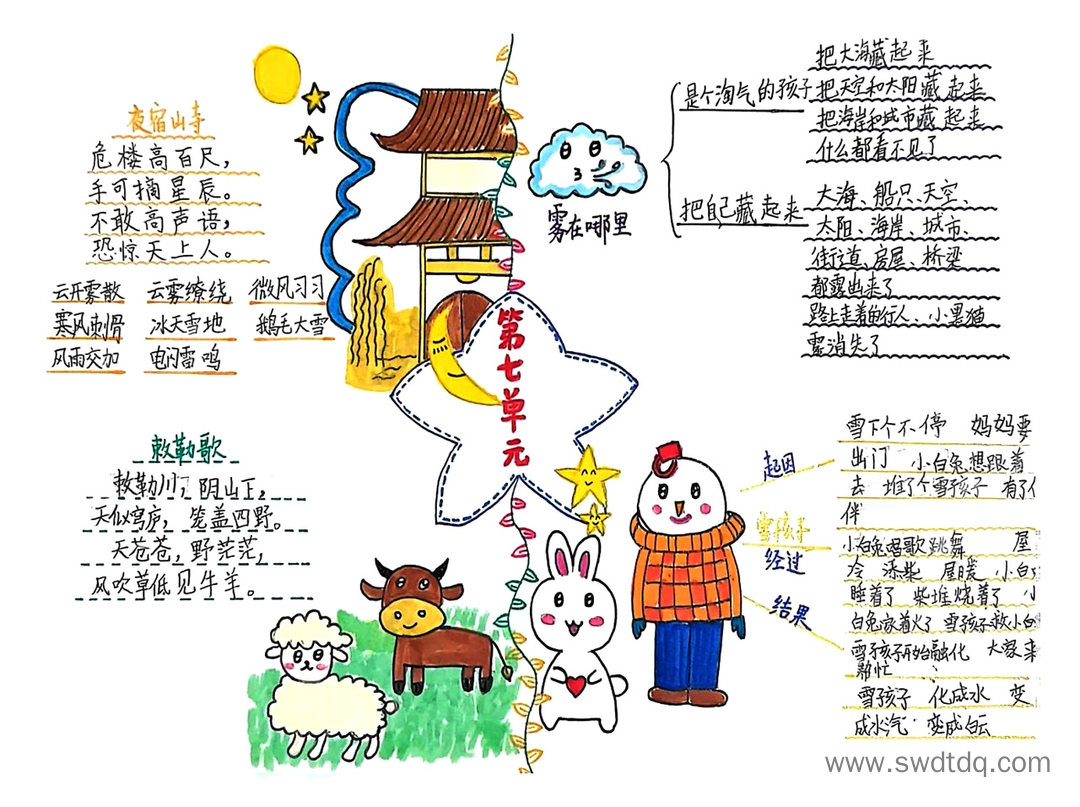 夜宿山寺
危楼高百尺，
手可摘星辰。
不敢高声语，
恐惊天上人。
云开雾散 云雾缭绕 微风习习
寒风刺骨 冰天雪地 鹅毛大雪
风雨交加 电闪雷鸣
敕勒歌
敕勒川，阴山下，
天似穹庐，笼盖四野。
天苍苍，野茫茫，
风吹草低见牛羊。
第七单元
雾在哪里
是个淘气的孩子
把大海藏起来
把天空和太阳藏起来
把海岸和城市藏起来
什么都看不见了
把自己藏起来
大海、船只、天空、
太阳、海岸、城市、
街道、房屋、桥梁
都露出来了
路上走着的行人、小黑猫
雾消失了
雪孩子
起因
雪下个不停 妈妈要
出门 小白兔想跟着
去 堆了个雪孩子 有了
伴
经过
小白兔唱歌跳舞 屋
冷 添柴 屋暖 小白
睡着了 柴堆烧着了 小
白兔家着火了 雪孩子救小白
结果
雪孩子开始融化 大家来
帮忙
雪孩子 化成水 变
成水汽 变成白云
www.swdtdq.com